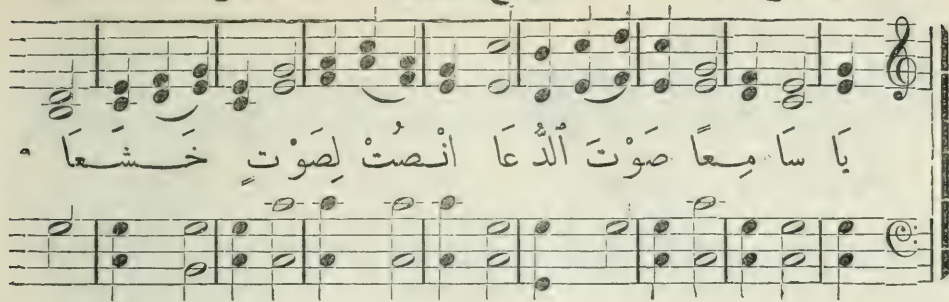 يَا سَا مِـعًا صَوْتَ ٱلدُّ عَا انْـصتْ لِصَوْ تٍ خَـشـعَا